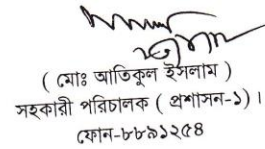 ( মোঃ আতিকুল ইসলাম )
সহকারী পরিচালক ( প্রশাসন-১) ।
ফোন-৮৮৯১২৫৪